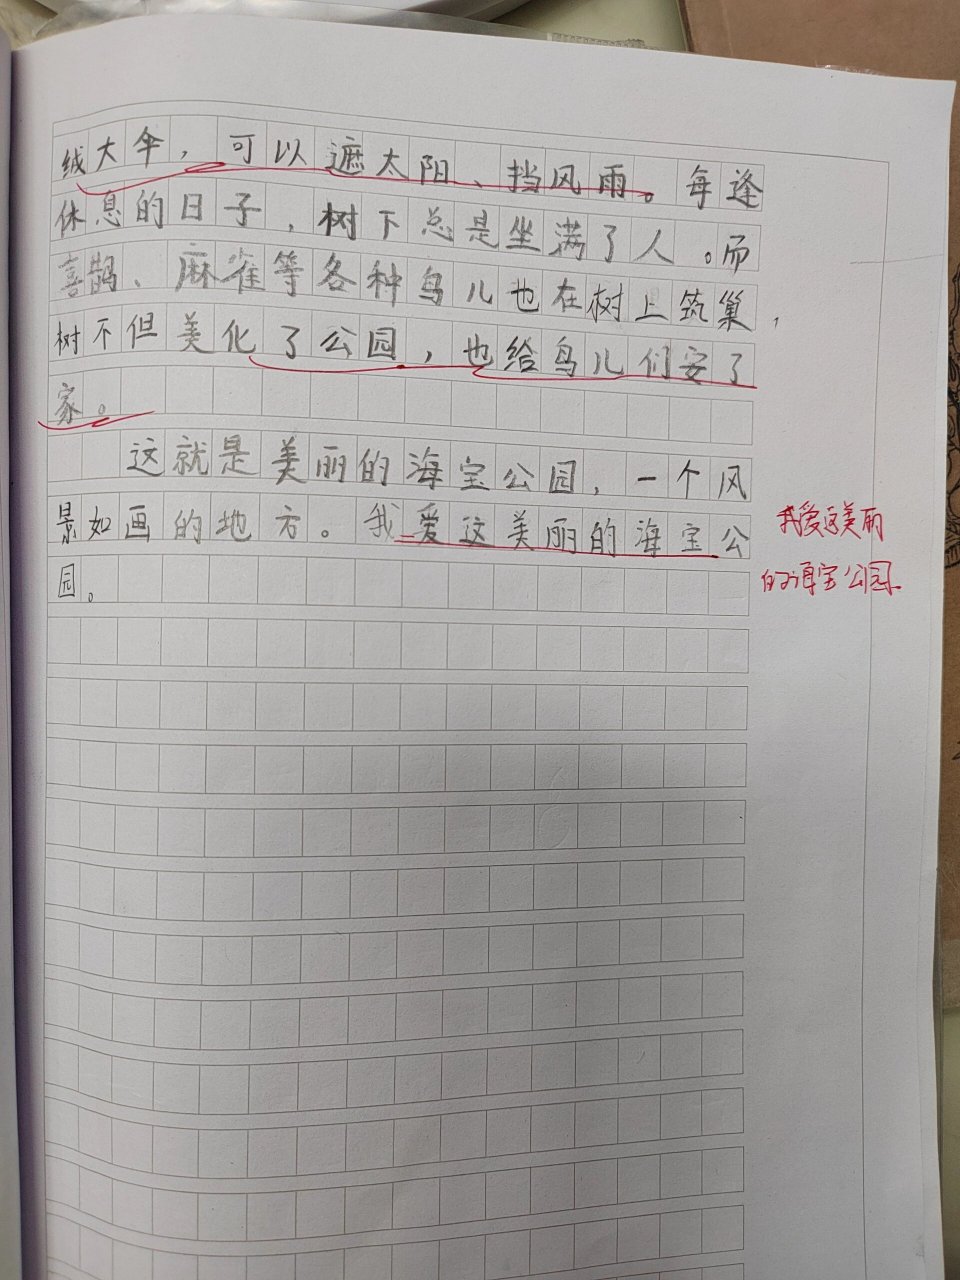 绒大伞，可以遮太阳、挡风雨。每逢
休息的日子，树下总是坐满了人。而
喜鹊、麻雀等各种鸟儿也在树上筑巢，
树不但美化了公园，也给鸟儿们安了
家。
这就是美丽的海宝公园，一个风
景如画的地方。我爱这美丽的海宝公
园。
我爱这美丽
的海宝公园